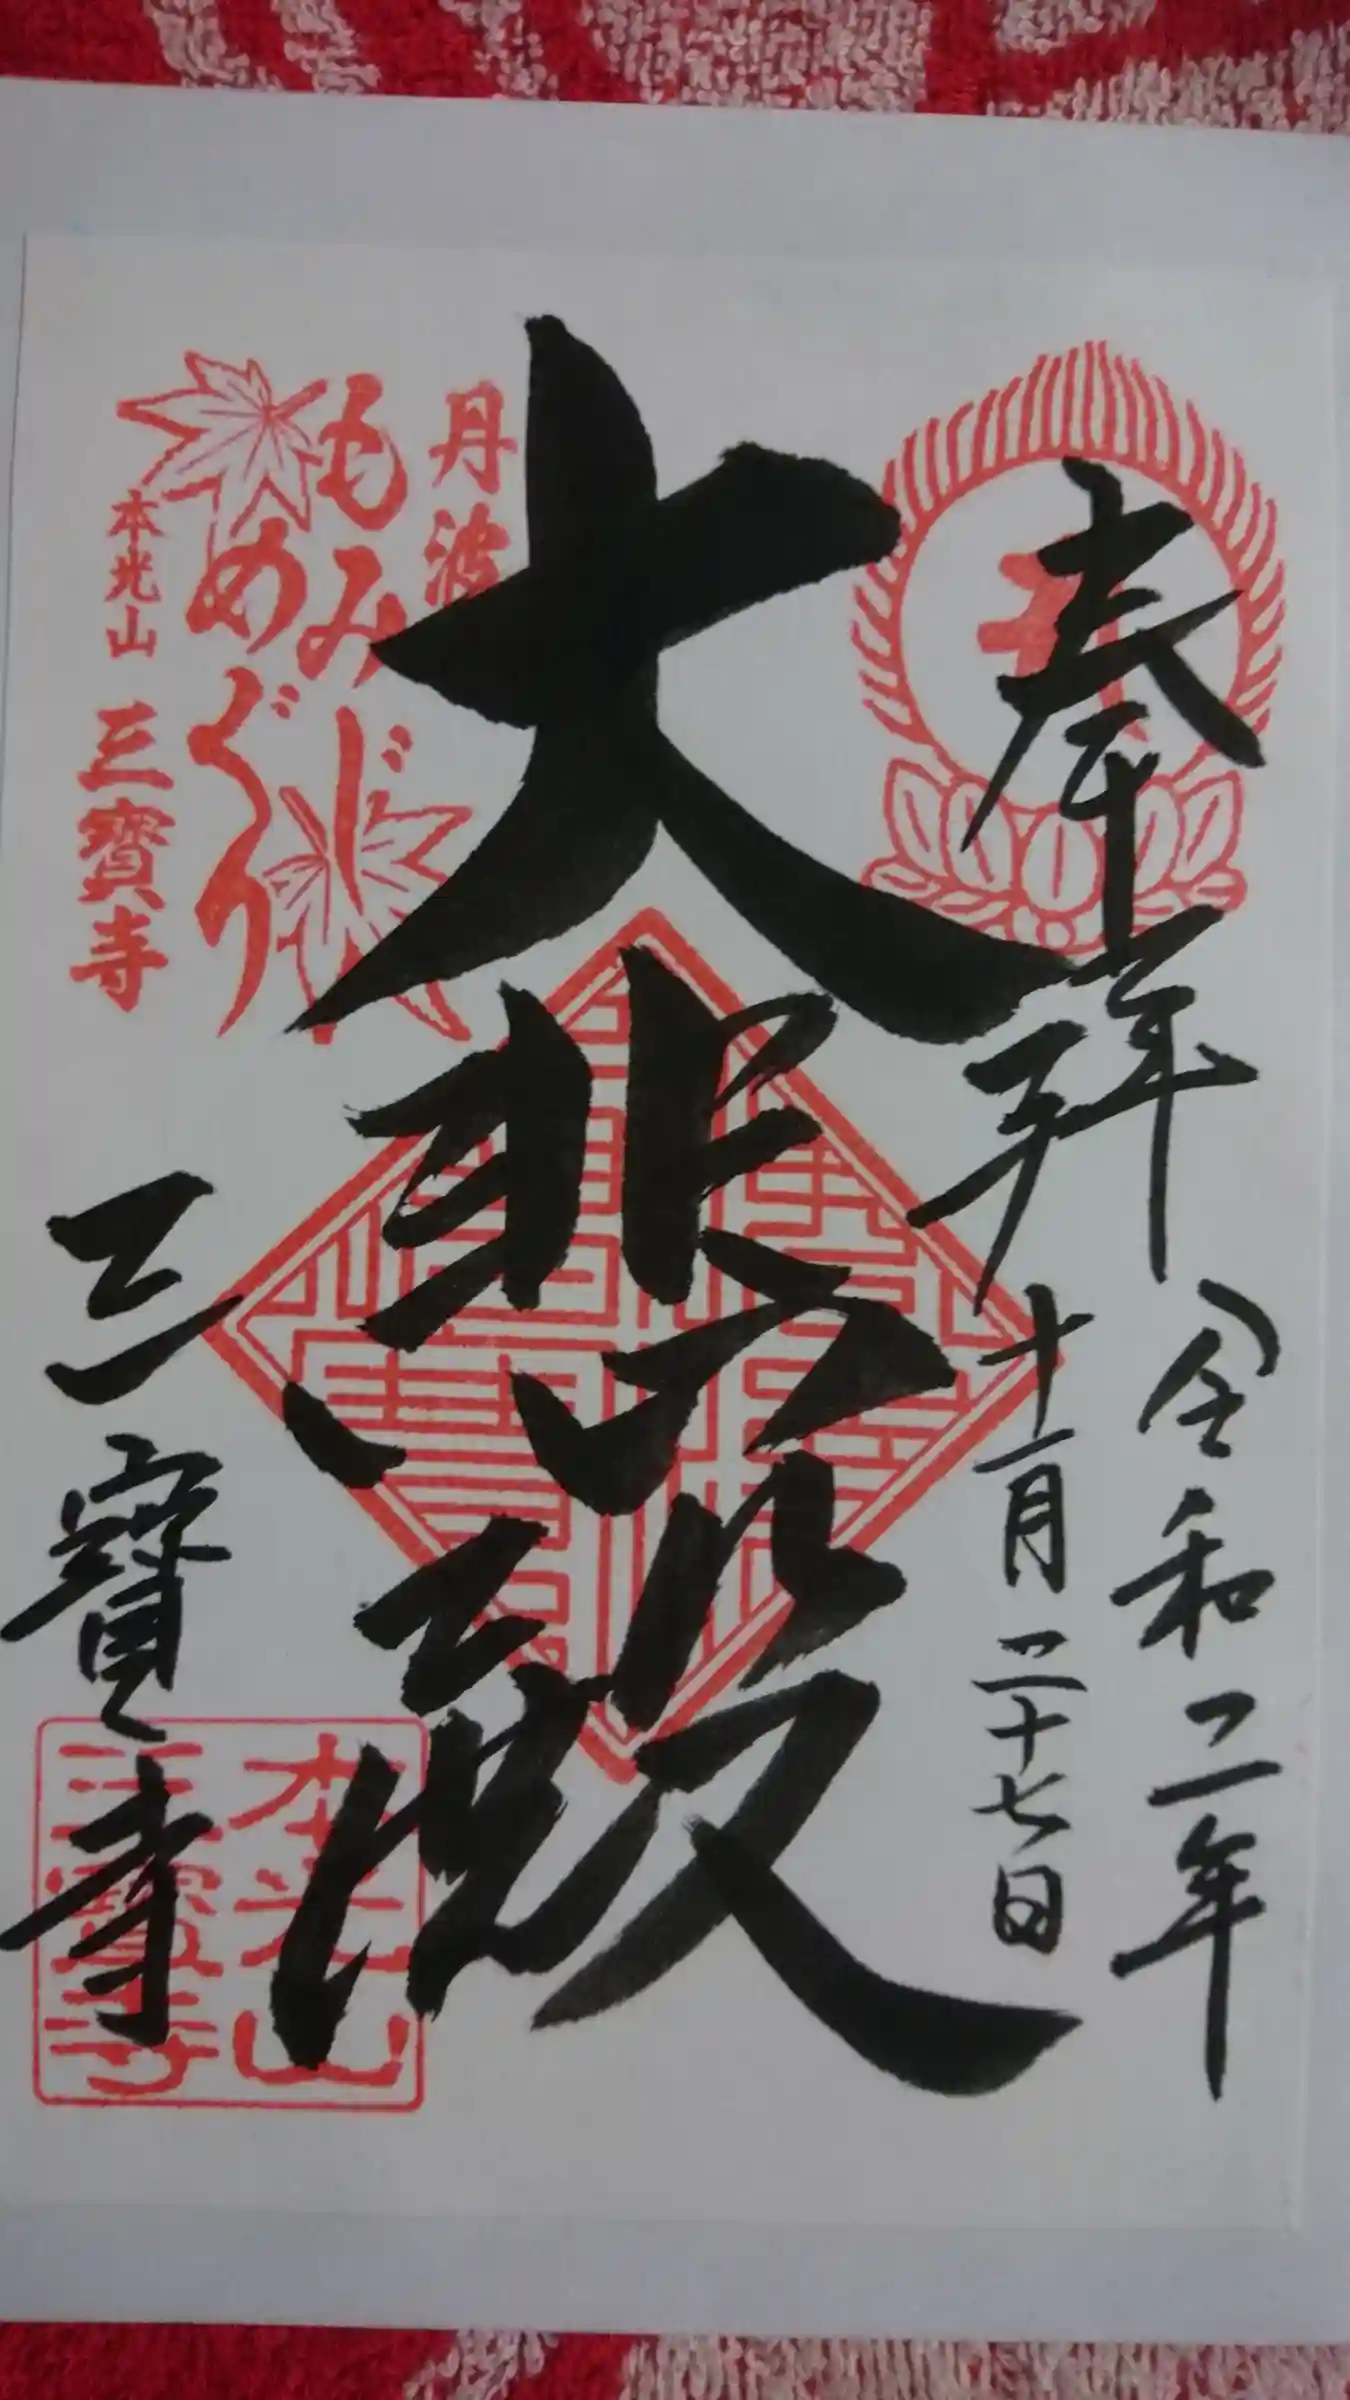 奉拝
令和二年
十一月二十七日
大悲殿
丹波
もみじ
めぐり
本光山 三寶寺
三寶寺
本光山
三寶寺